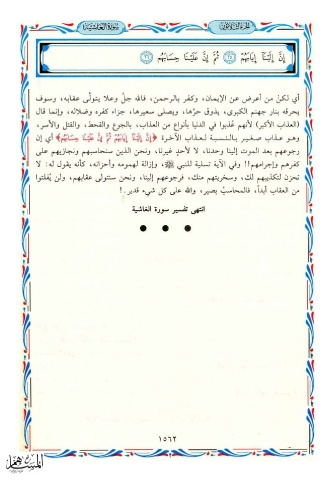 الجزء الثلاثون
سورة الغاشية
إِنَّ إِلَيْنَا إِيَابَهُمْ ٢٥ ثُمَّ إِنَّ عَلَيْنَا حِسَابَهُم ٢٦
أي لكنْ من أعرض عن الإيمان، وكفر بالرحمن، فالله جلَّ وعلا يتولَّى عقابه، وسوف
يحرقه بنار جهنم الكبرى، يذوق حرَّها، ويصلى سعيرها، جزاء كفره وضلاله، وإنما قال
(العذاب الأكبر) لأنهم عُذِّبوا في الدنيا بأنواع من العذاب، بالجوع والقحط، والقتل والأسر،
وهو عذاب صغير بالنسبة لعذاب الآخرة ﴿إِنَّ إِلَيْنَا إِيَابَهُمْ ثُمَّ إِنَّ عَلَيْنَا حِسَابَهُمْ﴾ أي إن
رجوعهم بعد الموت إلينا وحدنا، لا لأحدٍ غيرنا، ونحن الذين سنحاسبهم ونجازيهم على
كفرهم وإجرامهم!! وفي الآية تسلية للنبي ﷺ، وإزالة لهمومه وأحزانه، كأنه يقول له: لا
تحزن لتكذيبهم لك، وسخريتهم منك، فرجوعهم إلينا، ونحن سنتولى عقابهم، ولن يُفلتوا
من العقاب أبداً، فالمحاسبُ بصير، والله على كل شيء قدير.!
انتهى تفسير سورة الغاشية
١٥٦٢